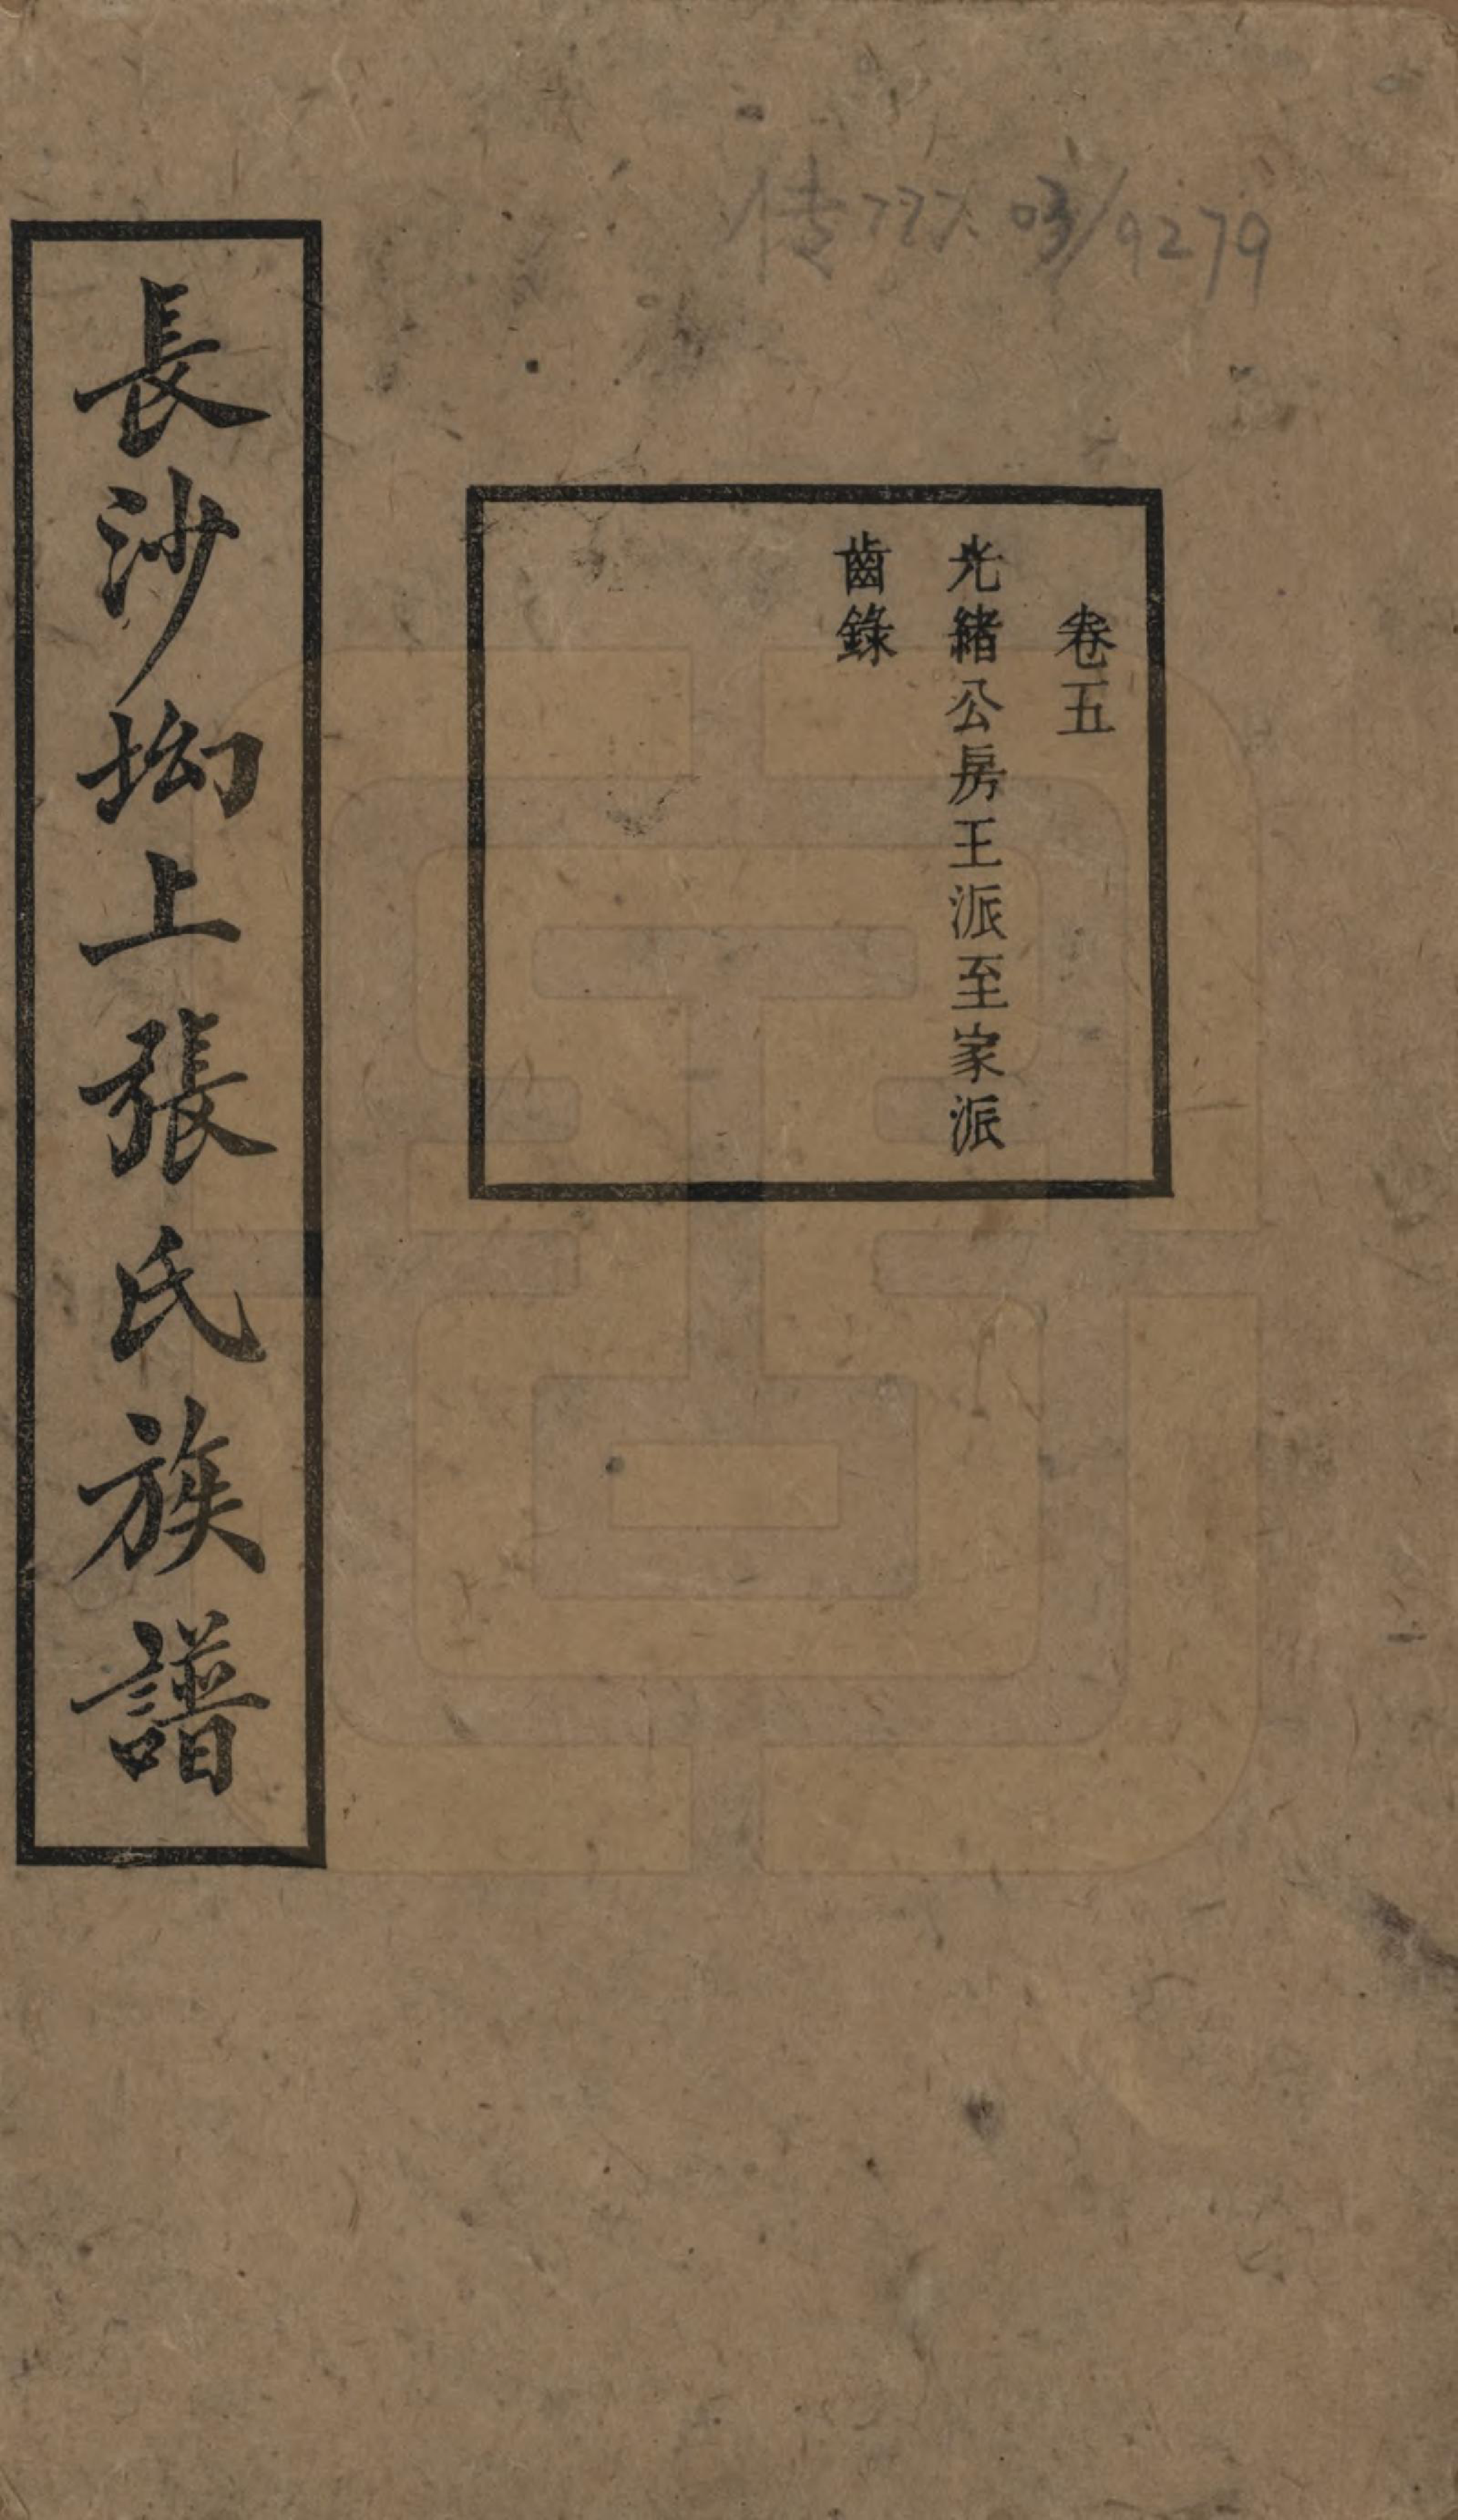 传777.03/9279
卷五
光緒公房王派至家派
齒錄
長沙坳上張氏族譜